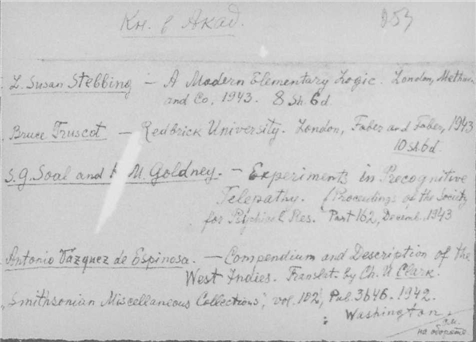 Кн. в Акад. 253
L. Susan Stebbing — A Modern Elementary Logic. London, Methuen
and Co, 1943. 8 Sh. 6d
Bruce Truscot — Redbrick University. London, Faber and Faber, 1943
10 sh 6d.
S. G. Soal and M. Goldney. — Experiments in Precognitive
Telepathy. (Proceedings of the Society
for Psychical Res. Part 162, Decemb. 1943
Antonio Vázquez de Espinosa. — Compendium and Description of the
West Indies. Translat. by Ch. U. Clark.
"Smithsonian Miscellaneous Collections", vol. 102, Pub. 3646. 1942.
Washington.
на обороте